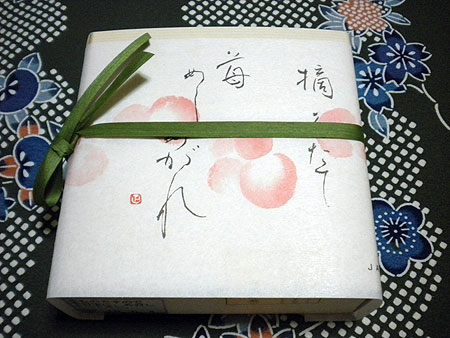 摘みたて
苺
めしあがれ